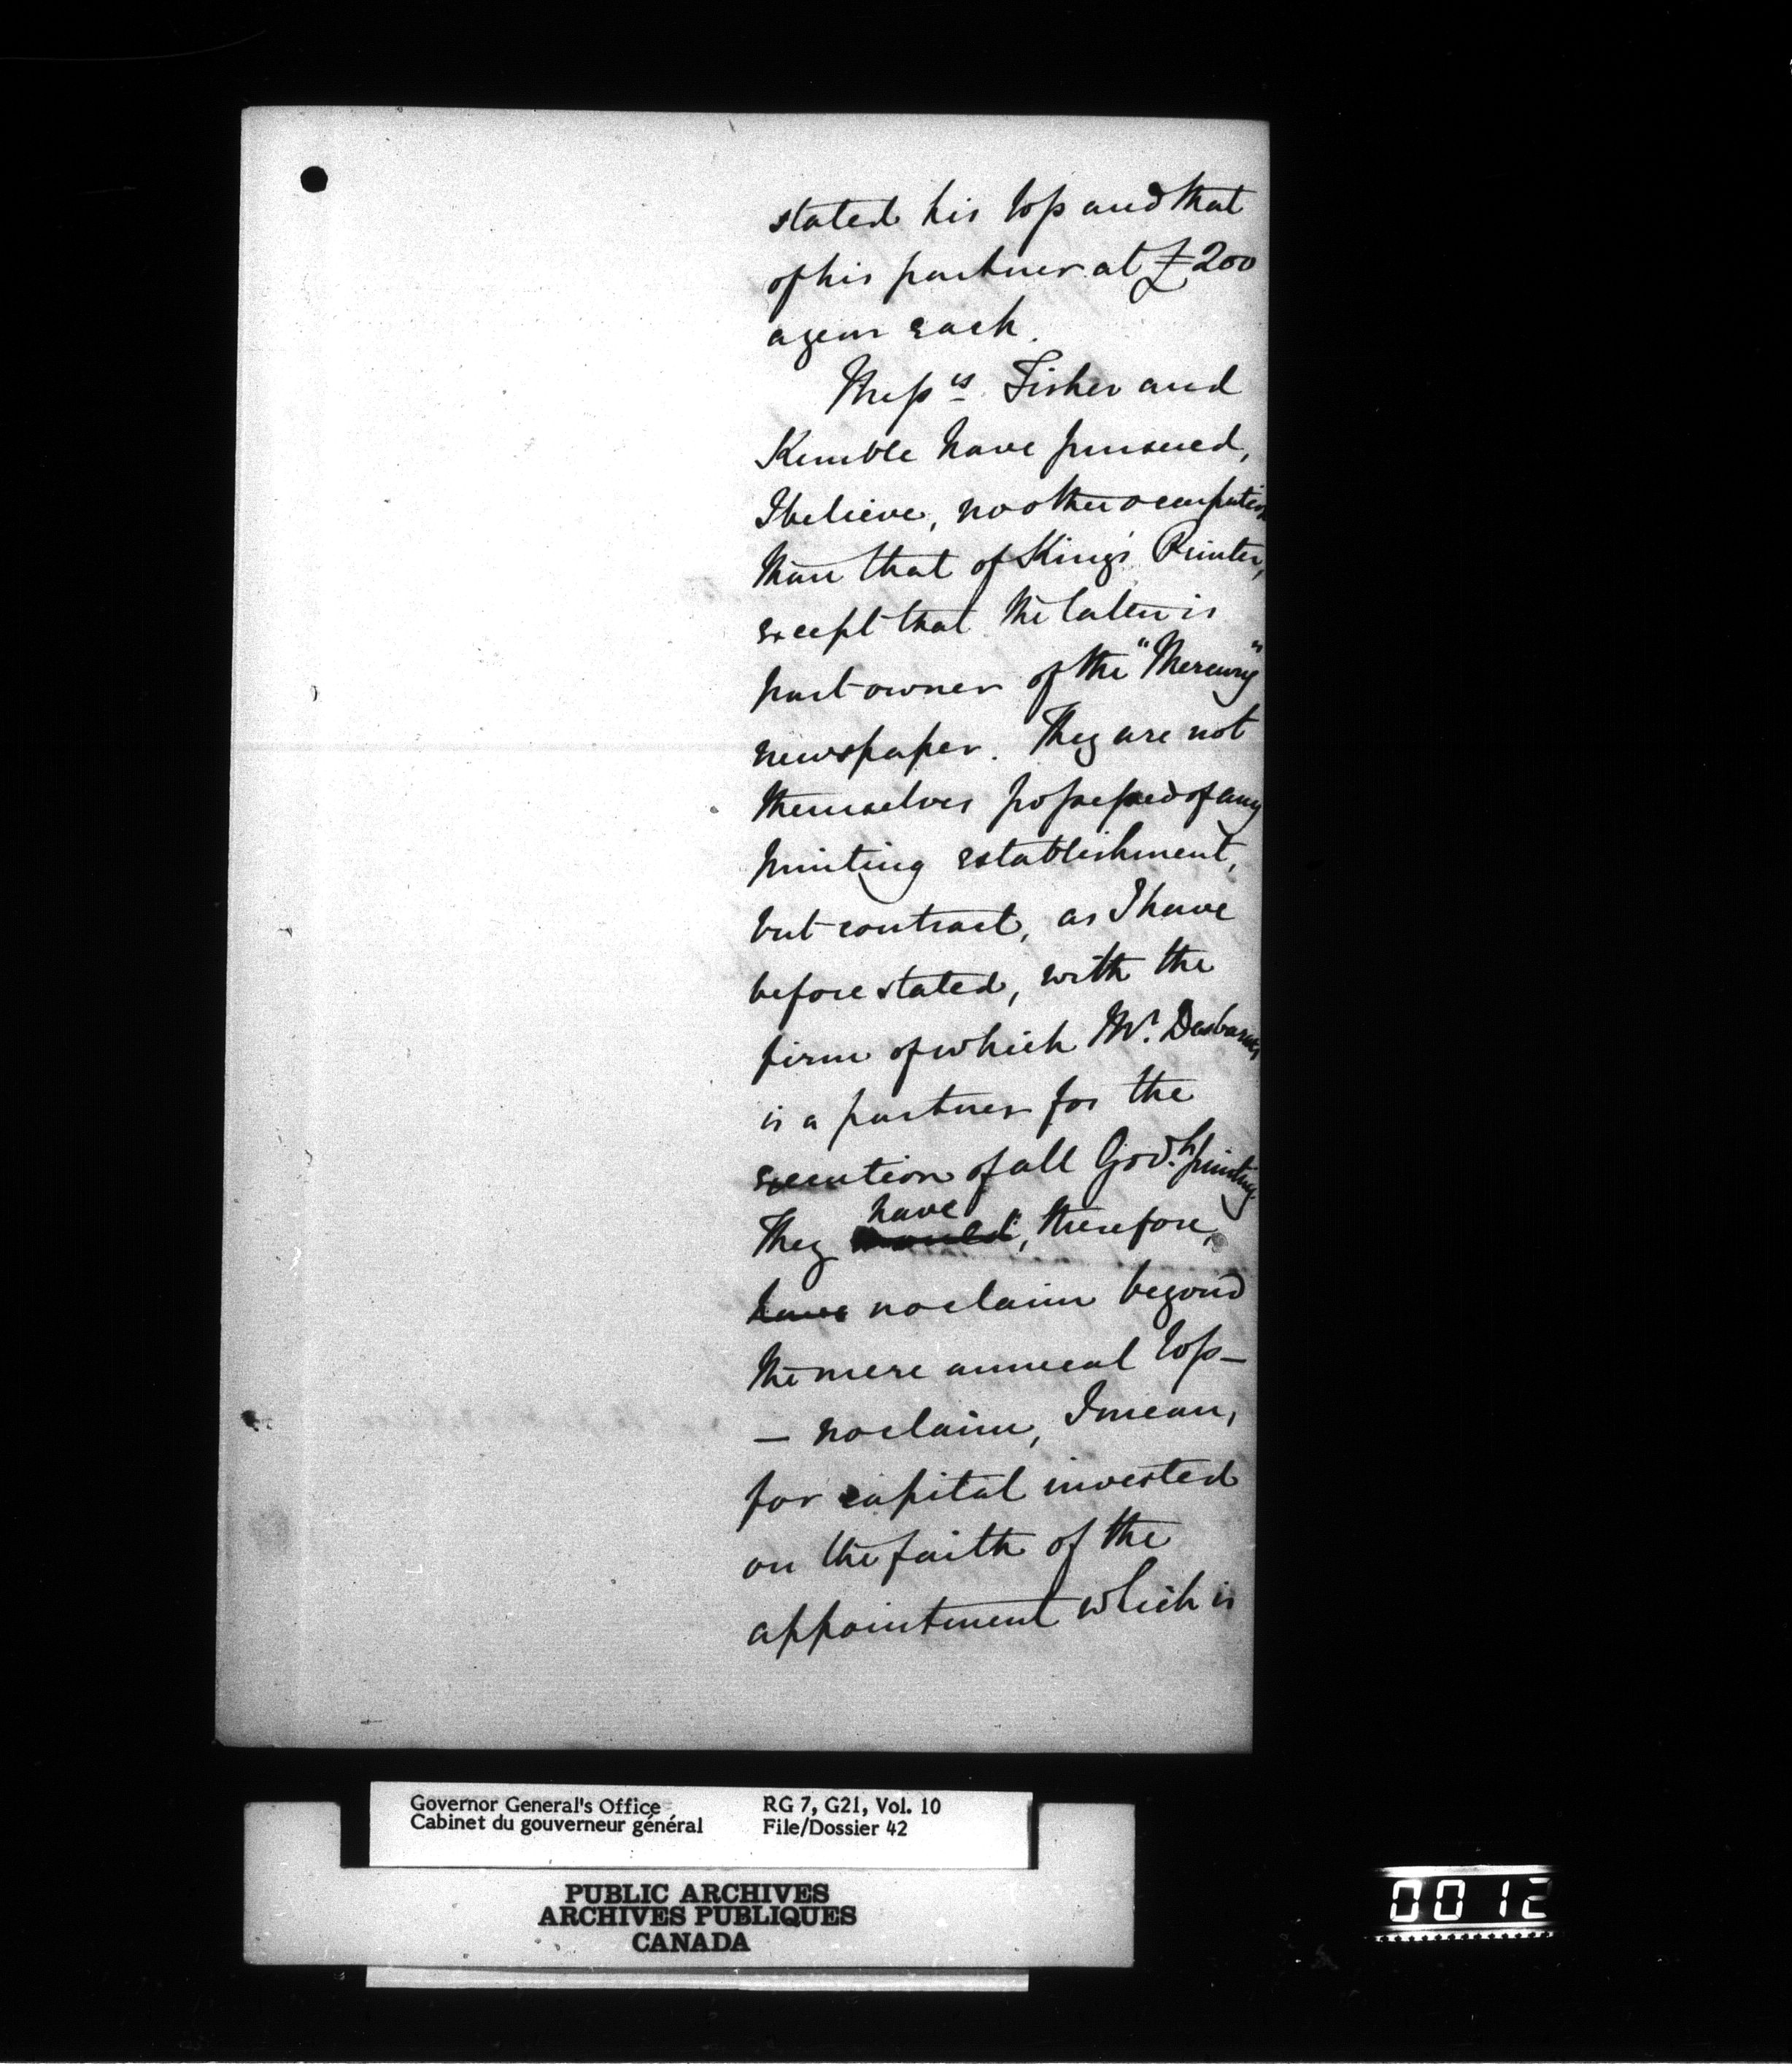 stated his loss and that
of his partner at £200
a year each.
Messrs. Fisher and
Kemble have pursued,
I believe, no other occupation
than that of King's Printer,
except that the latter is
part owner of the "Mercury"
newspaper. They are not
themselves possessed of any
printing establishment,
but contract, as I have
before stated, with the
firm of which Mr. Desbarats
is a partner for the
execution of all Govt. printing.
have
They would, therefore,
have no claim beyond
the mere annual loss —
— no claim, I mean,
for capital invested
on the faith of the
appointment which is
Governor General's Office RG 7, G21, Vol. 10
Cabinet du gouverneur général File/Dossier 42
PUBLIC ARCHIVES
ARCHIVES PUBLIQUES
CANADA
0012